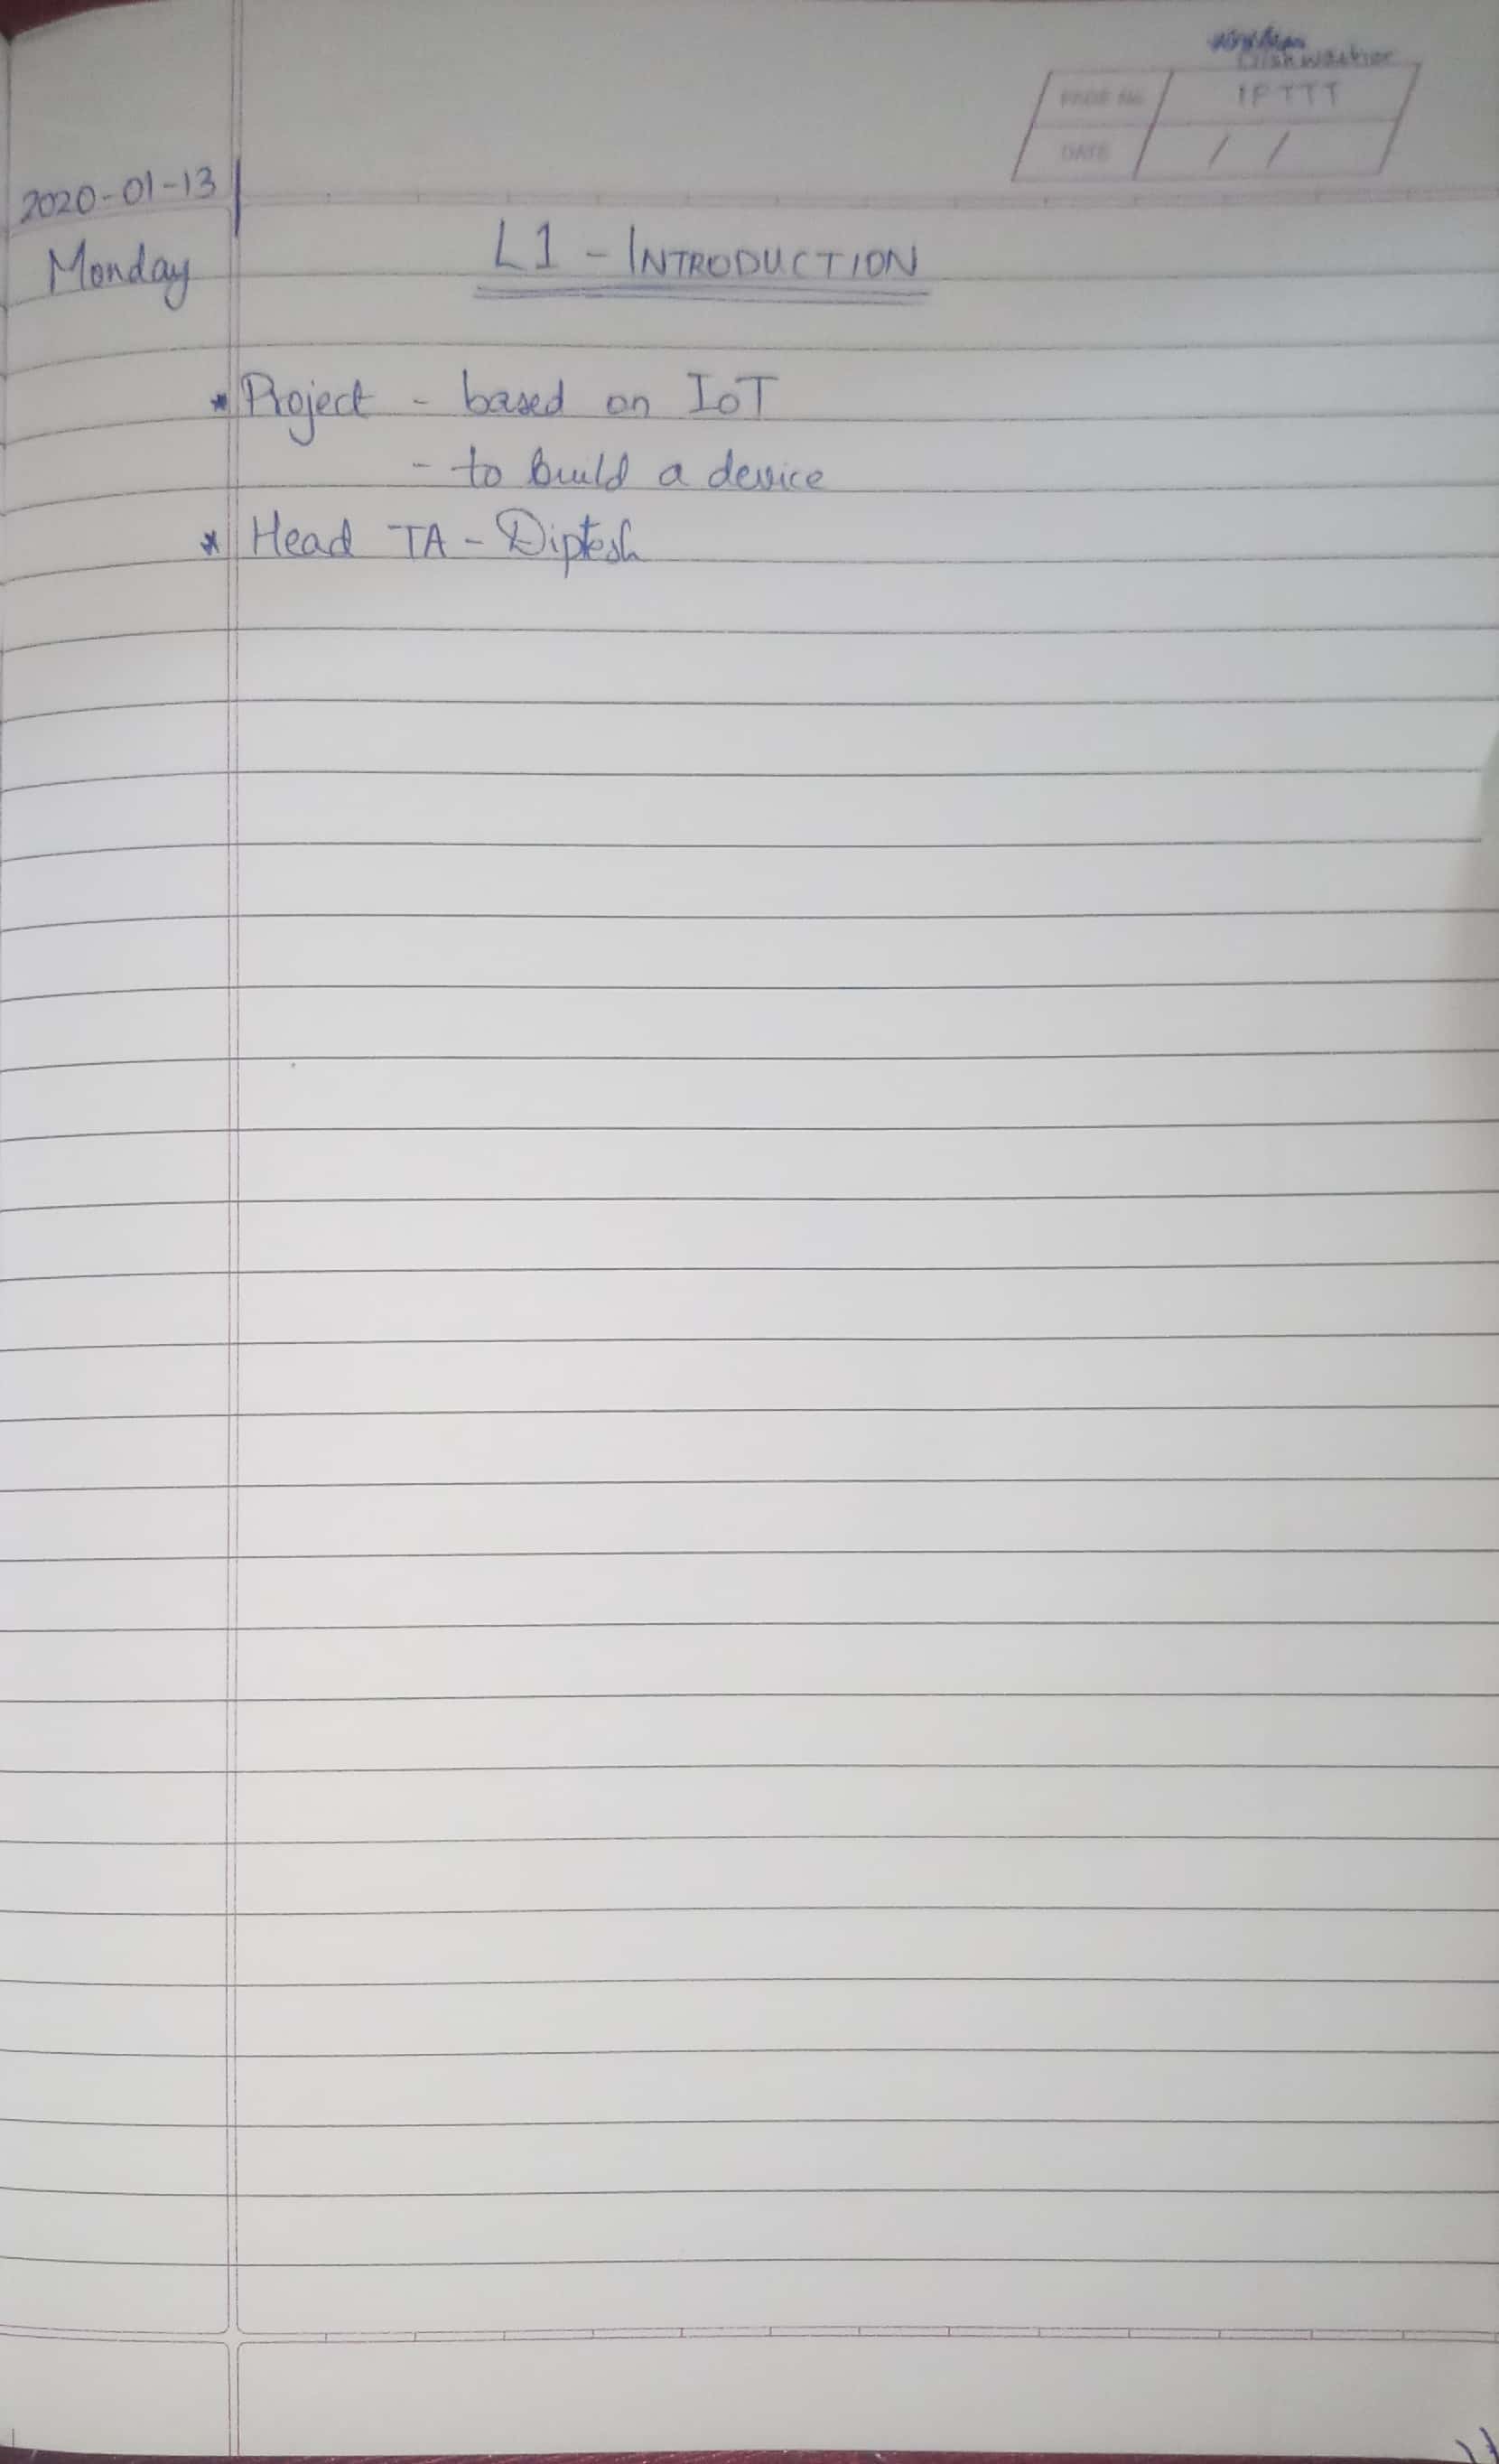 Dishwasher
PAGE No. IFTTT
DATE / /
2020-01-13
Monday
L1 - INTRODUCTION
* Project - based on IoT
- to build a device
* Head TA - Diptesh